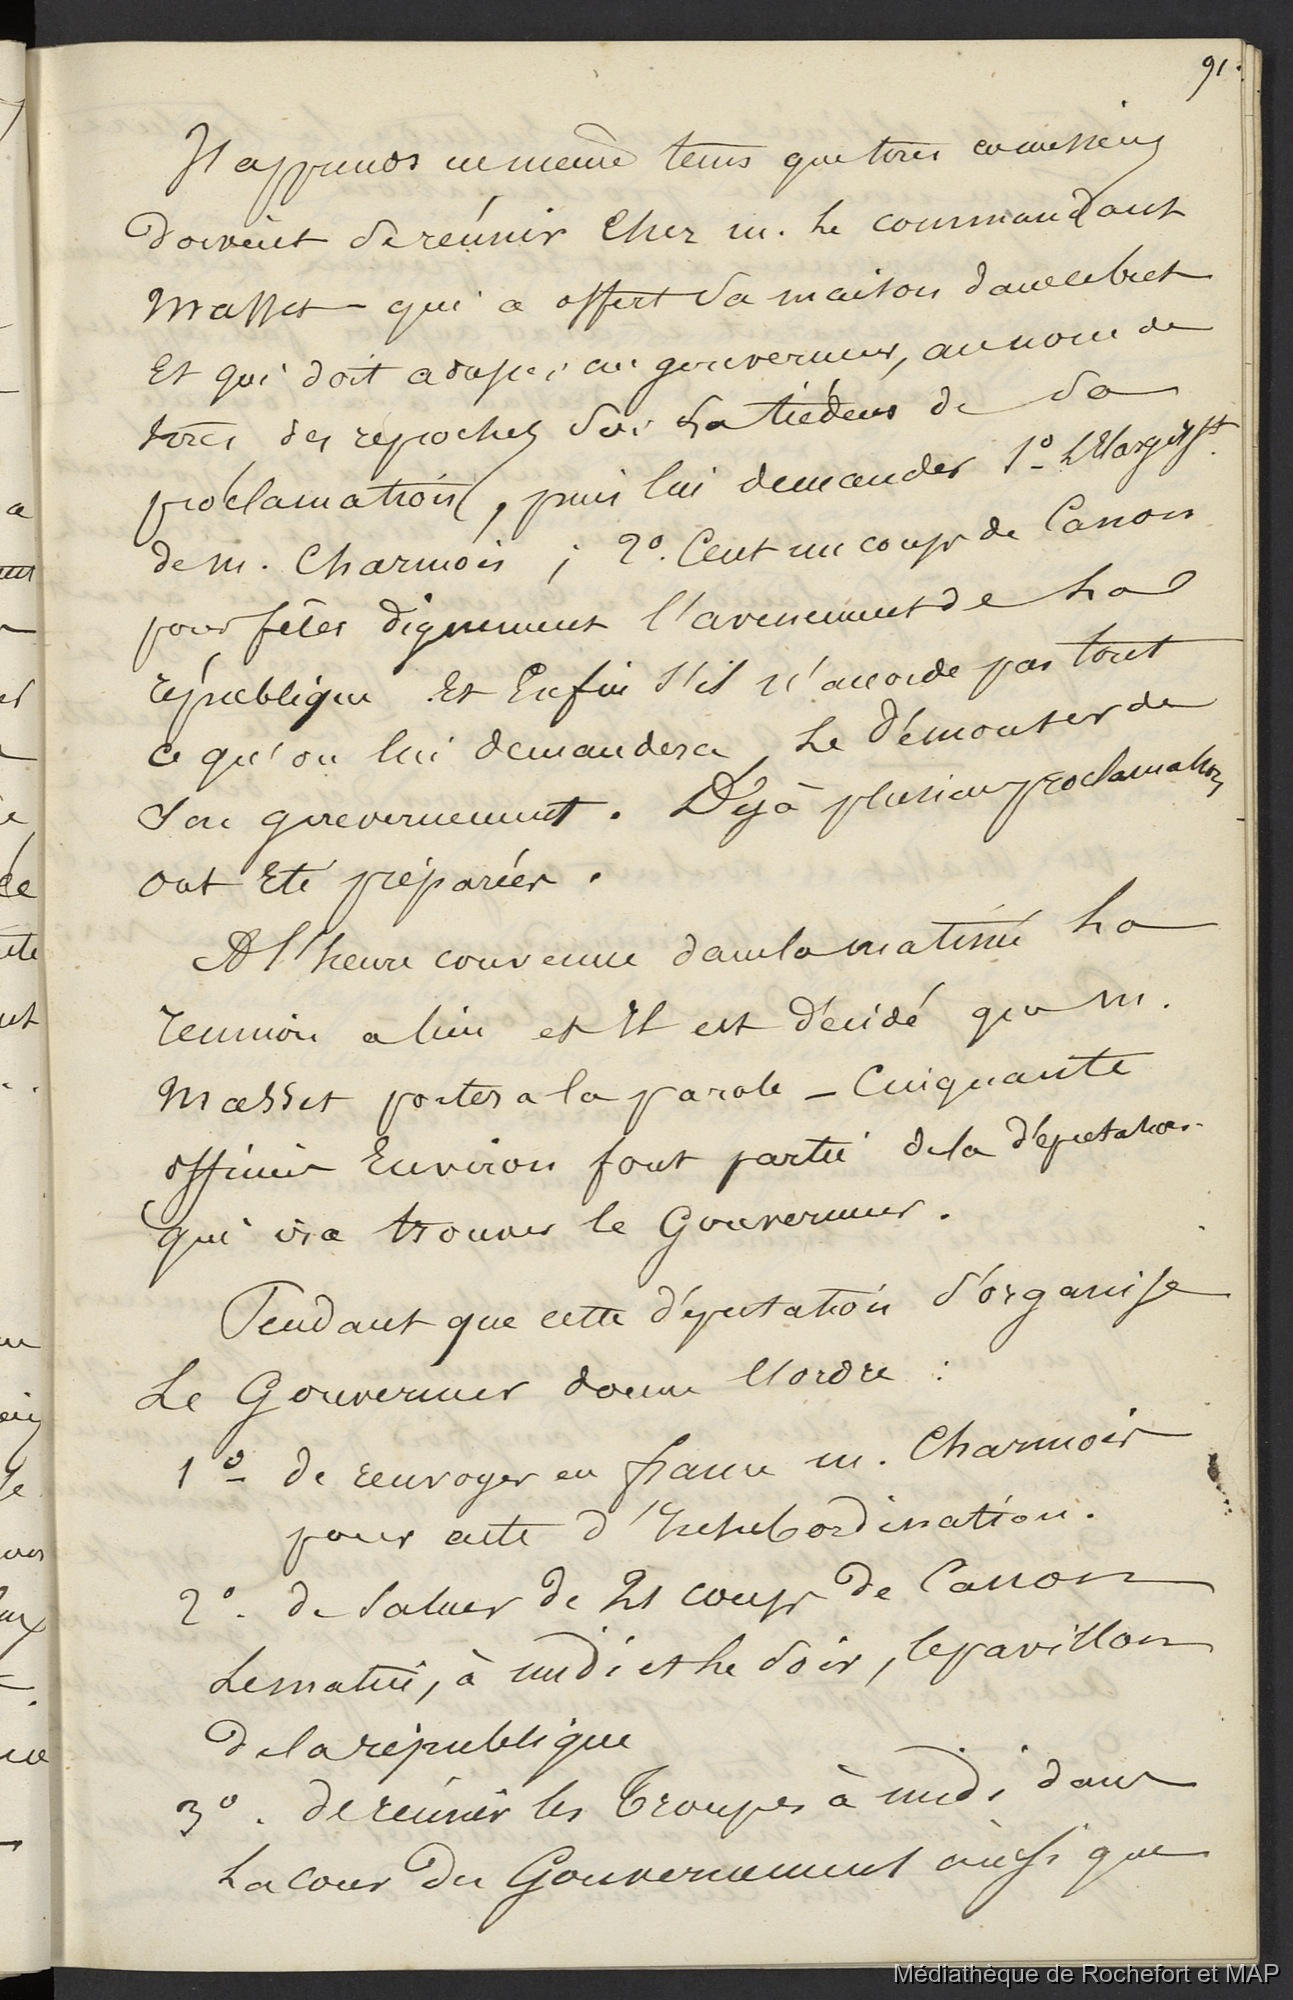 91.
Il apprends en même tems que tous ces messieurs
doivent se réunir chez m. le commandant
Masset qui a offert sa maison dans ce but
Et qui doit adresser au gouverneur, au nom de
tous, des reproches sur sa tiédeur de sa
proclamation, puis lui demander 1º l'Elargisst
de m. Charmois ; 2º. Cent un coups de Canon
pour fêter dignement l'avenement de la
république Et Enfin s'il n'accorde pas tout
ce qu'on lui demandera, Le démonter de
son gouvernement. Déjà plusieurs proclamations
ont Eté préparées.
A l'heure convenue dans la matinée La
reunion a lieu et Il est décidé que m.
Masset portera la parole – Cinquante
officiers Environ font partie de la députation
qui ira trouver le Gouverneur.
Pendant que cette députation s'organise
Le Gouverneur donne l'ordre :
1º de renvoyer en france m. Charmois
pour acte d'Insubordination.
2º. de saluer de 21 coups de Canon
Le matin, à midi et le soir, le pavillon
de la république
3º. de réunir les Troupes à midi dans
La cour du Gouvernement ainsi que
Médiathèque de Rochefort et MAP